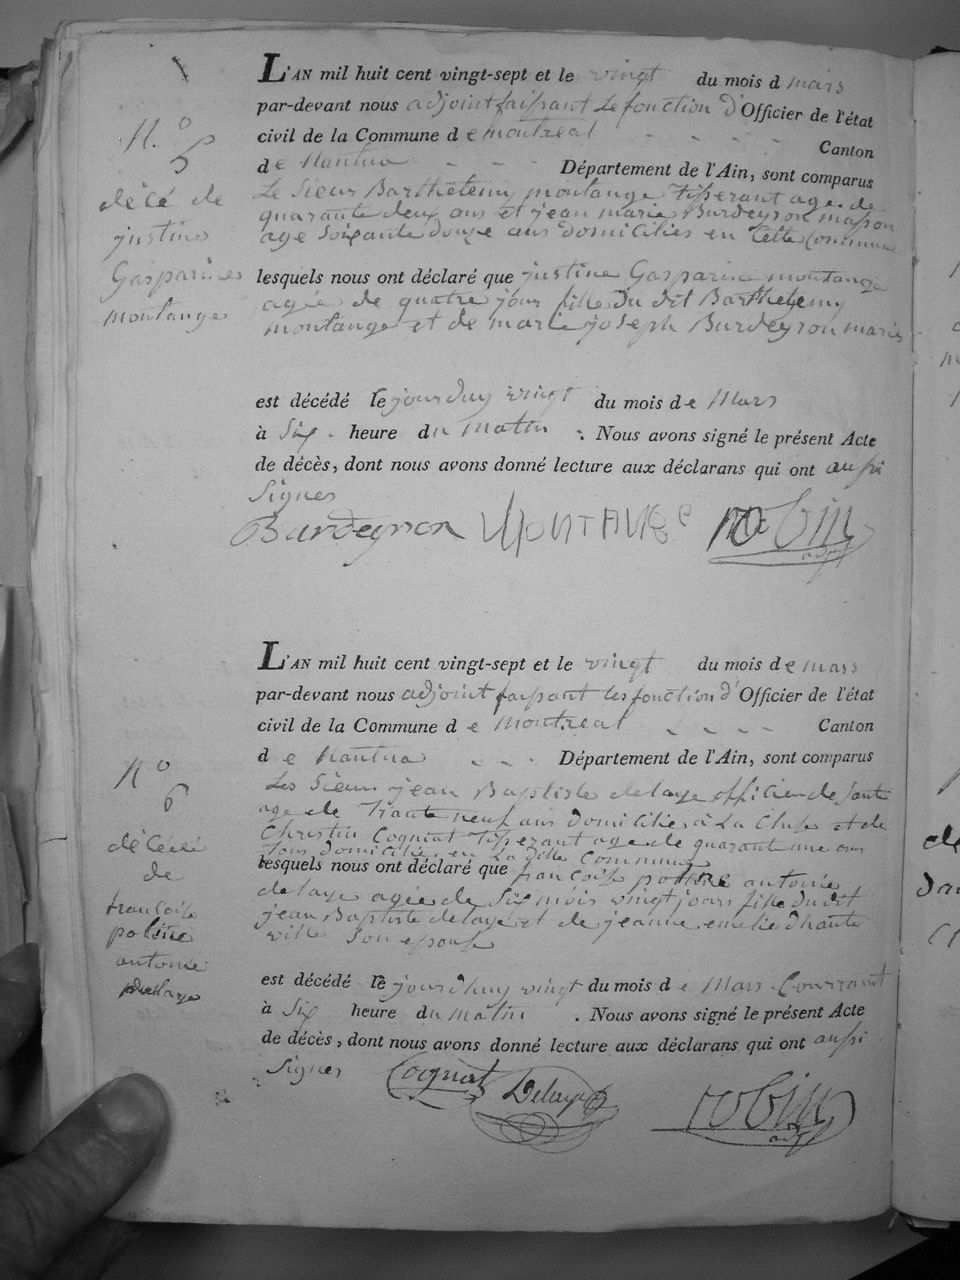 L'AN mil huit cent vingt-sept et le vingt du mois d mars
par-devant nous adjoint faissant Le fonction d'Officier de l'état
civil de la Commune de montreal Canton
de Nantua Département de l'Ain, sont comparus
Le Sieur Barthelemy montange Tisserant age de
quarante deux ans et jean marie Burdeyron masson
age soixante douze ans domicilies en cette Commune
lesquels nous ont déclaré que justine Gasparine montange
agée de quatre jour fille du dit Barthelemy
montange et de marie joseph Burdeyron maries
est décédé le jourduy vingt du mois de Mars
à Six heure du Matin . Nous avons signé le présent Acte
de décès, dont nous avons donné lecture aux déclarans qui ont aussi
Signes
Burdeyron MONTANGe robin
adj
N.º
5
décé de
justine
Gasparine
montange
L'AN mil huit cent vingt-sept et le vingt du mois de mars
par-devant nous adjoint faissant les fonction d'Officier de l'état
civil de la Commune de Montreal Canton
de Nantua Département de l'Ain, sont comparus
Les Sieur jean Baptiste delaye officier de santé
age de Trante neuf ans domicilié à La Cluse et de
Christin Cogniat Tisserant age de quarant une ans
Tous domicilie en La dille Commune
lesquels nous ont déclaré que francoise antonie
delaye agée de Six mois vingt jours fille du dit
jean Baptiste delaye et de jeanne emelie dhaute
ville Son epouse
est décédé le jourdhuy vingt du mois de Mars Courrant
à Six heure du Matin . Nous avons signé le présent Acte
de décès, dont nous avons donné lecture aux déclarans qui ont aussi
Signes Cogniat Delaye robin
adj
Nº
6
décéé
de
francoise
poline
antonie
delaye